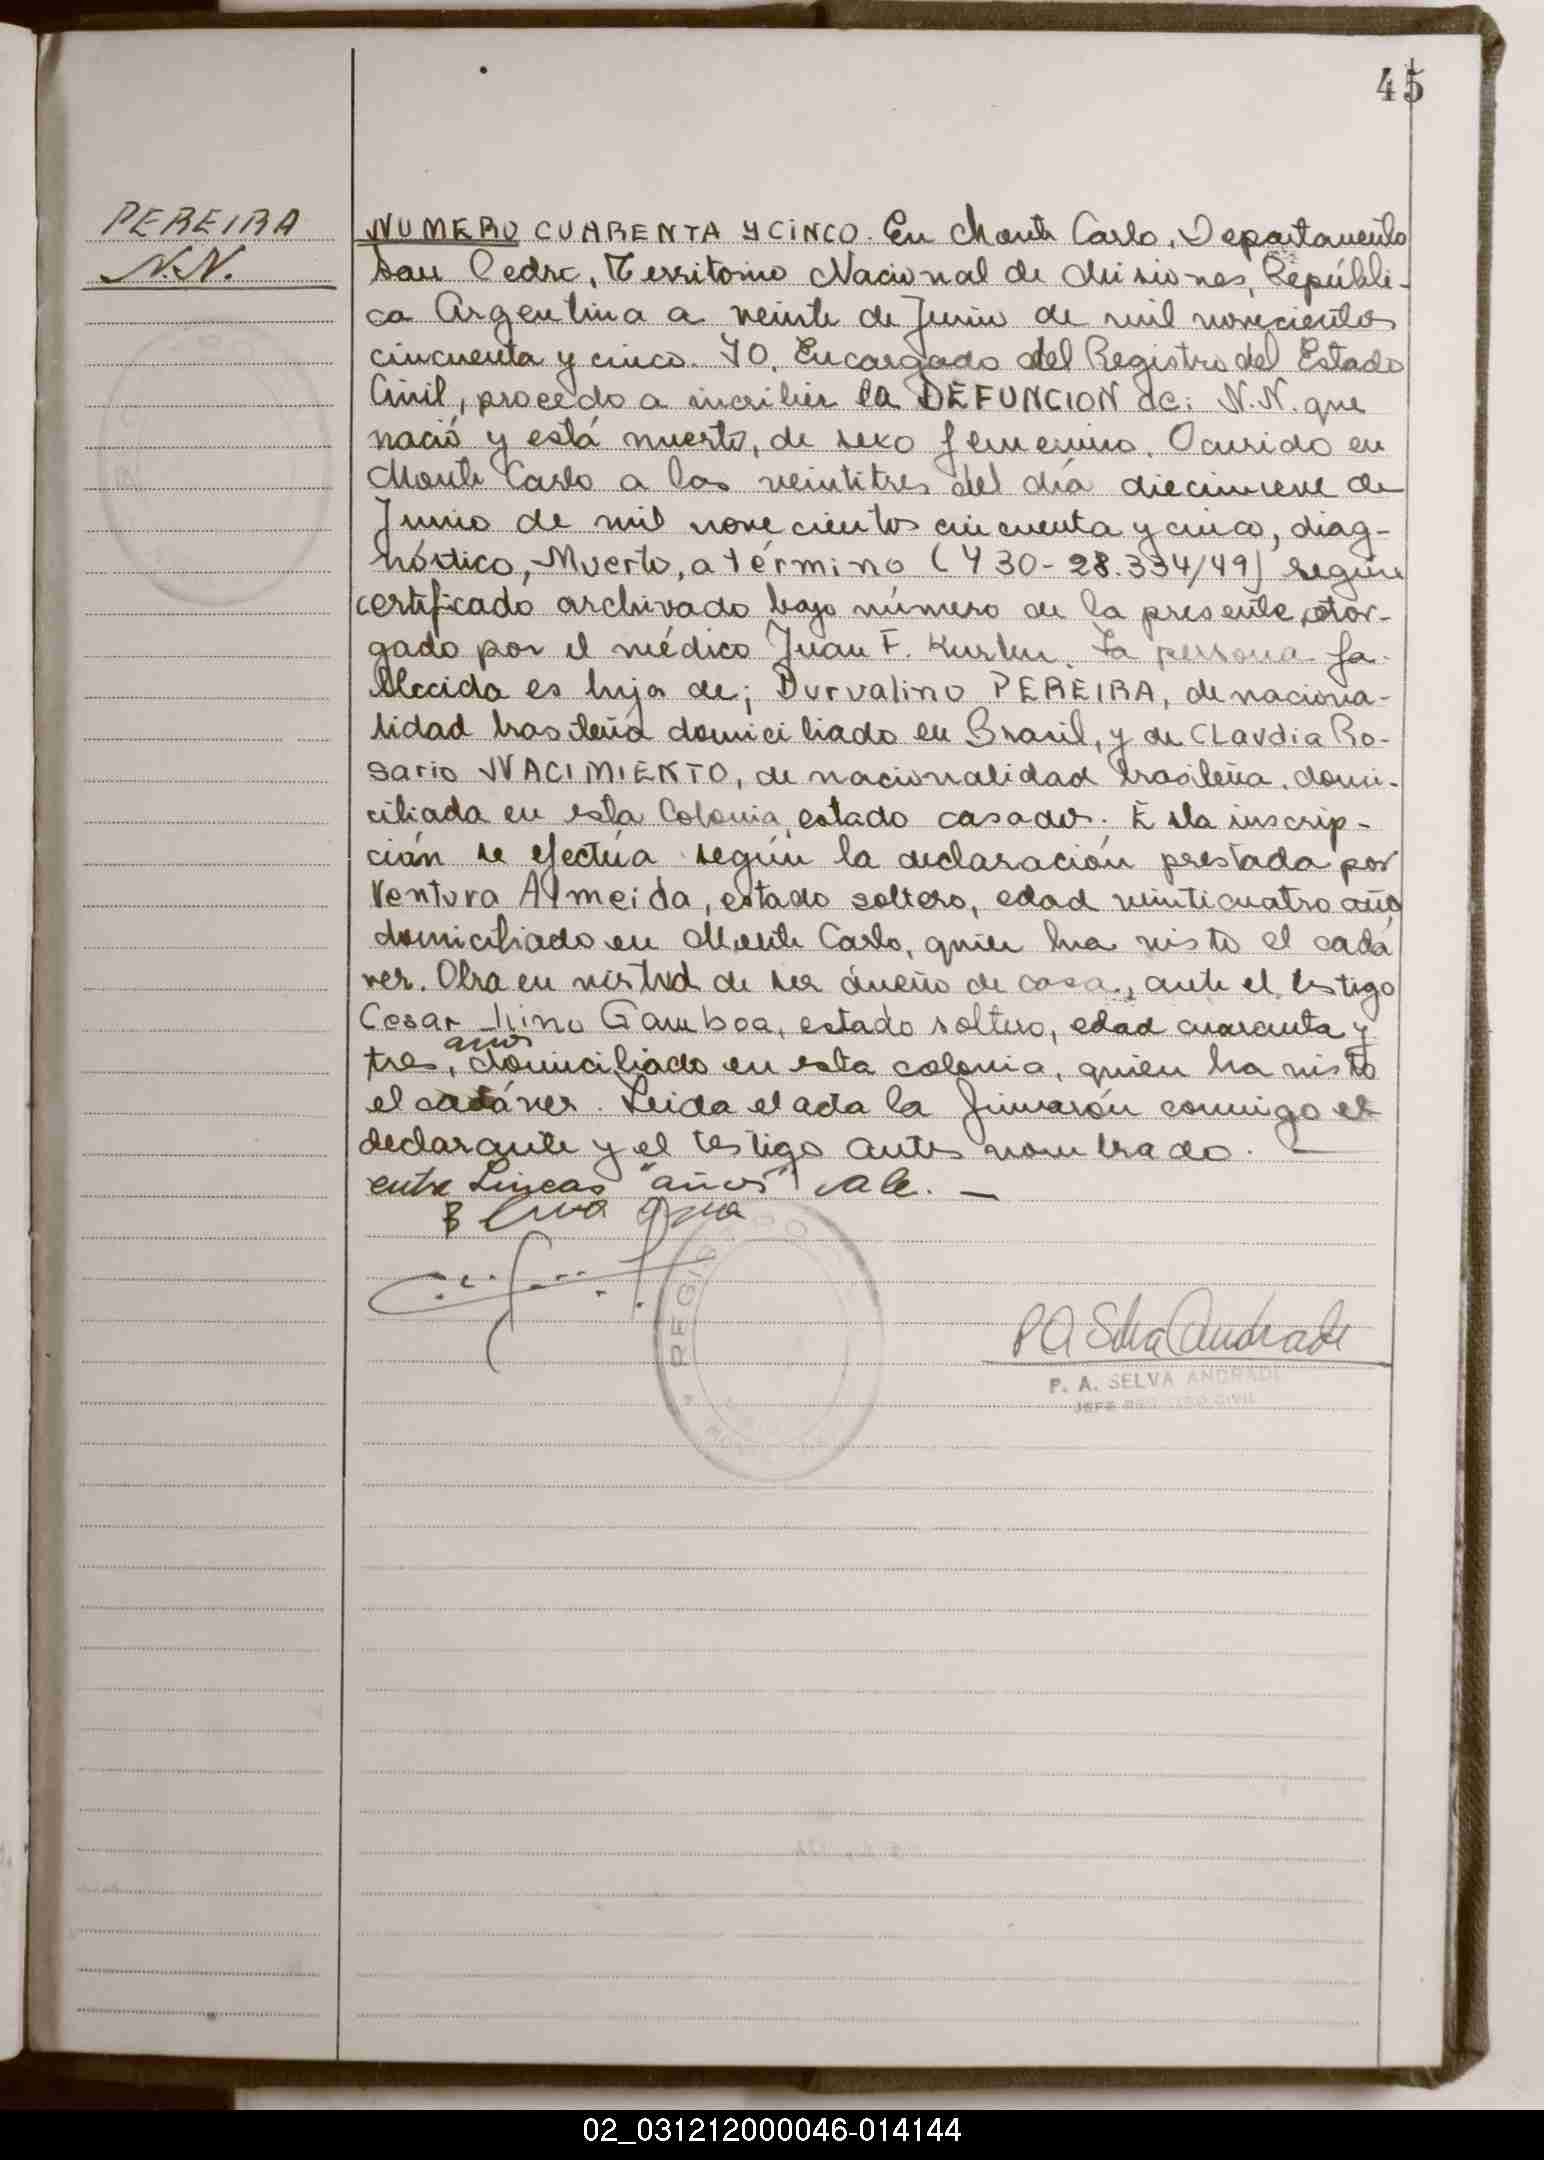 45
PEREIRA
N.N.
NUMERO CUARENTA Y CINCO. En Monte Carlo, Departamento
San Pedro, Territorio Nacional de Misiones, Repúbli-
ca Argentina a veinte de Junio de mil novecientos
cincuenta y cinco. YO, Encargado del Registro del Estado
Civil, procedo a inscribir la DEFUNCION de: N.N. que
nació y está muerto, de sexo femenino. Ocurido en
Monte Carlo a las veintitres del día diecinueve de
Junio de mil novecientos cincuenta y cinco, diag-
nóstico, Muerto, a término (Y 30-28.334/49) según
certificado archivado bajo número de la presente, otor-
gado por el médico Juan F. La persona fa-
llecida es hija de; Durvalino PEREIRA, de naciona-
lidad brasileña domiciliado en Brasil, y de CLaudia Ro-
sario NACIMIENTO, de nacionalidad brasileña, domi-
ciliada en esta Colonia, estado casados. Esta inscrip-
ción se efectúa según la declaración prestada por
Ventura Almeida, estado soltero, edad veinticuatro año
domiciliado en Monte Carlo, quien ha visto el cadá
ver. Obra en virtud de ser dueño de casa., ante el testigo
Cesar Lino Gamboa, estado soltero, edad cuarenta y
años
tres, domiciliado en esta colonia, quien ha visto
el cadáver. Leida el acta la firmarón conmigo el
declarante y el testigo antes nombrado. —
entre Lineas "años" vale. —
REGIS
P A Selva Andrade
P. A. SELVA ANDRADE
JEFE REGISTRO CIVIL
02_031212000046-014144